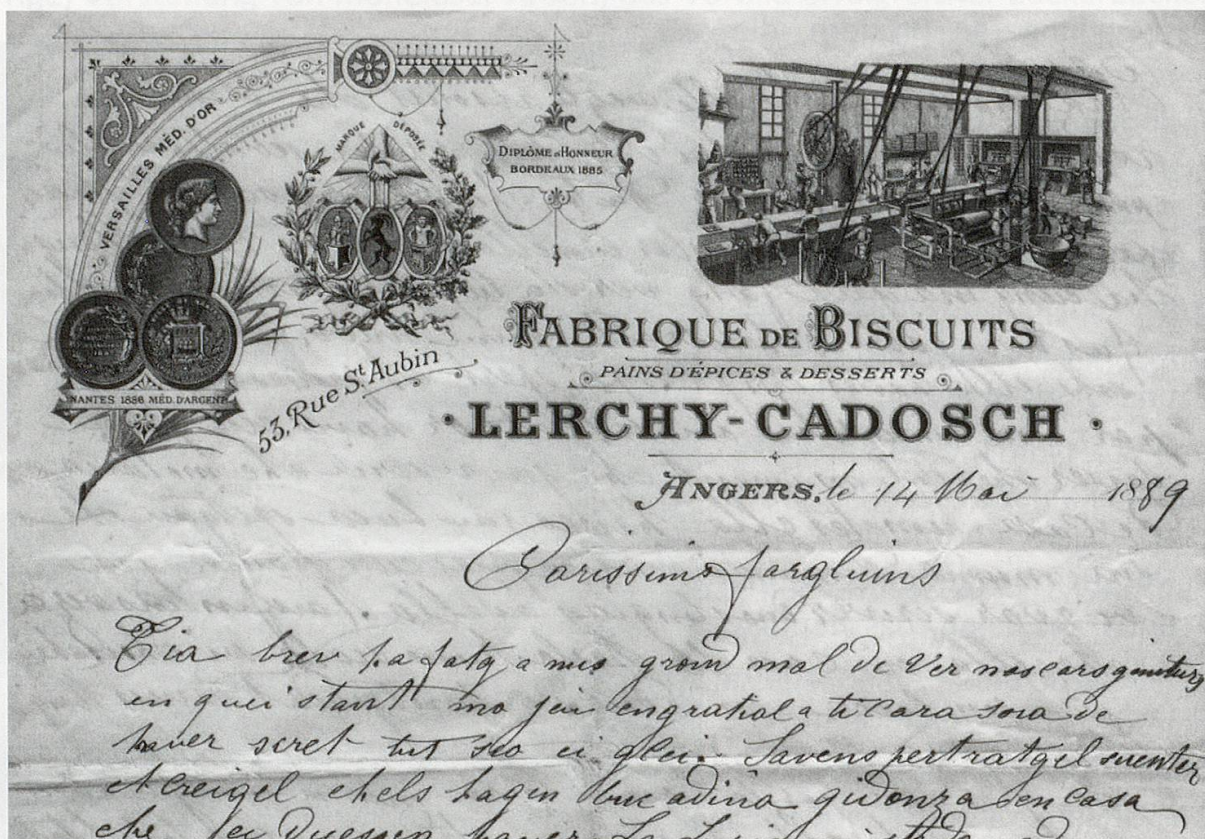 VERSAILLES MÉD. D'OR
MARQUE DÉPOSÉE
DIPLÔME D'HONNEUR
BORDEAUX 1885
NANTES 1886 MÉD. D'ARGENT
53, Rue St Aubin
FABRIQUE DE BISCUITS
PAINS D'ÉPICES & DESSERTS
· LERCHY-CADOSCH ·
ANGERS, le 14 Mai 1889
Carissims fargliuns
Tia brev ha fatg a mi grond mal de Ver nos cars geniturs
en quei stant mo jeu engratiel a ti Cara sora de
haver scret tut sco ei glei. Savens pertratgel suenter
et creigel chels hagen buc adina gidonza en casa
che jeu Duessen haver